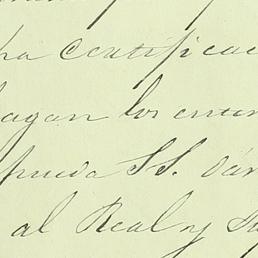 ha certificac
hagan los enter
pueda SS. dar
al Real y Su